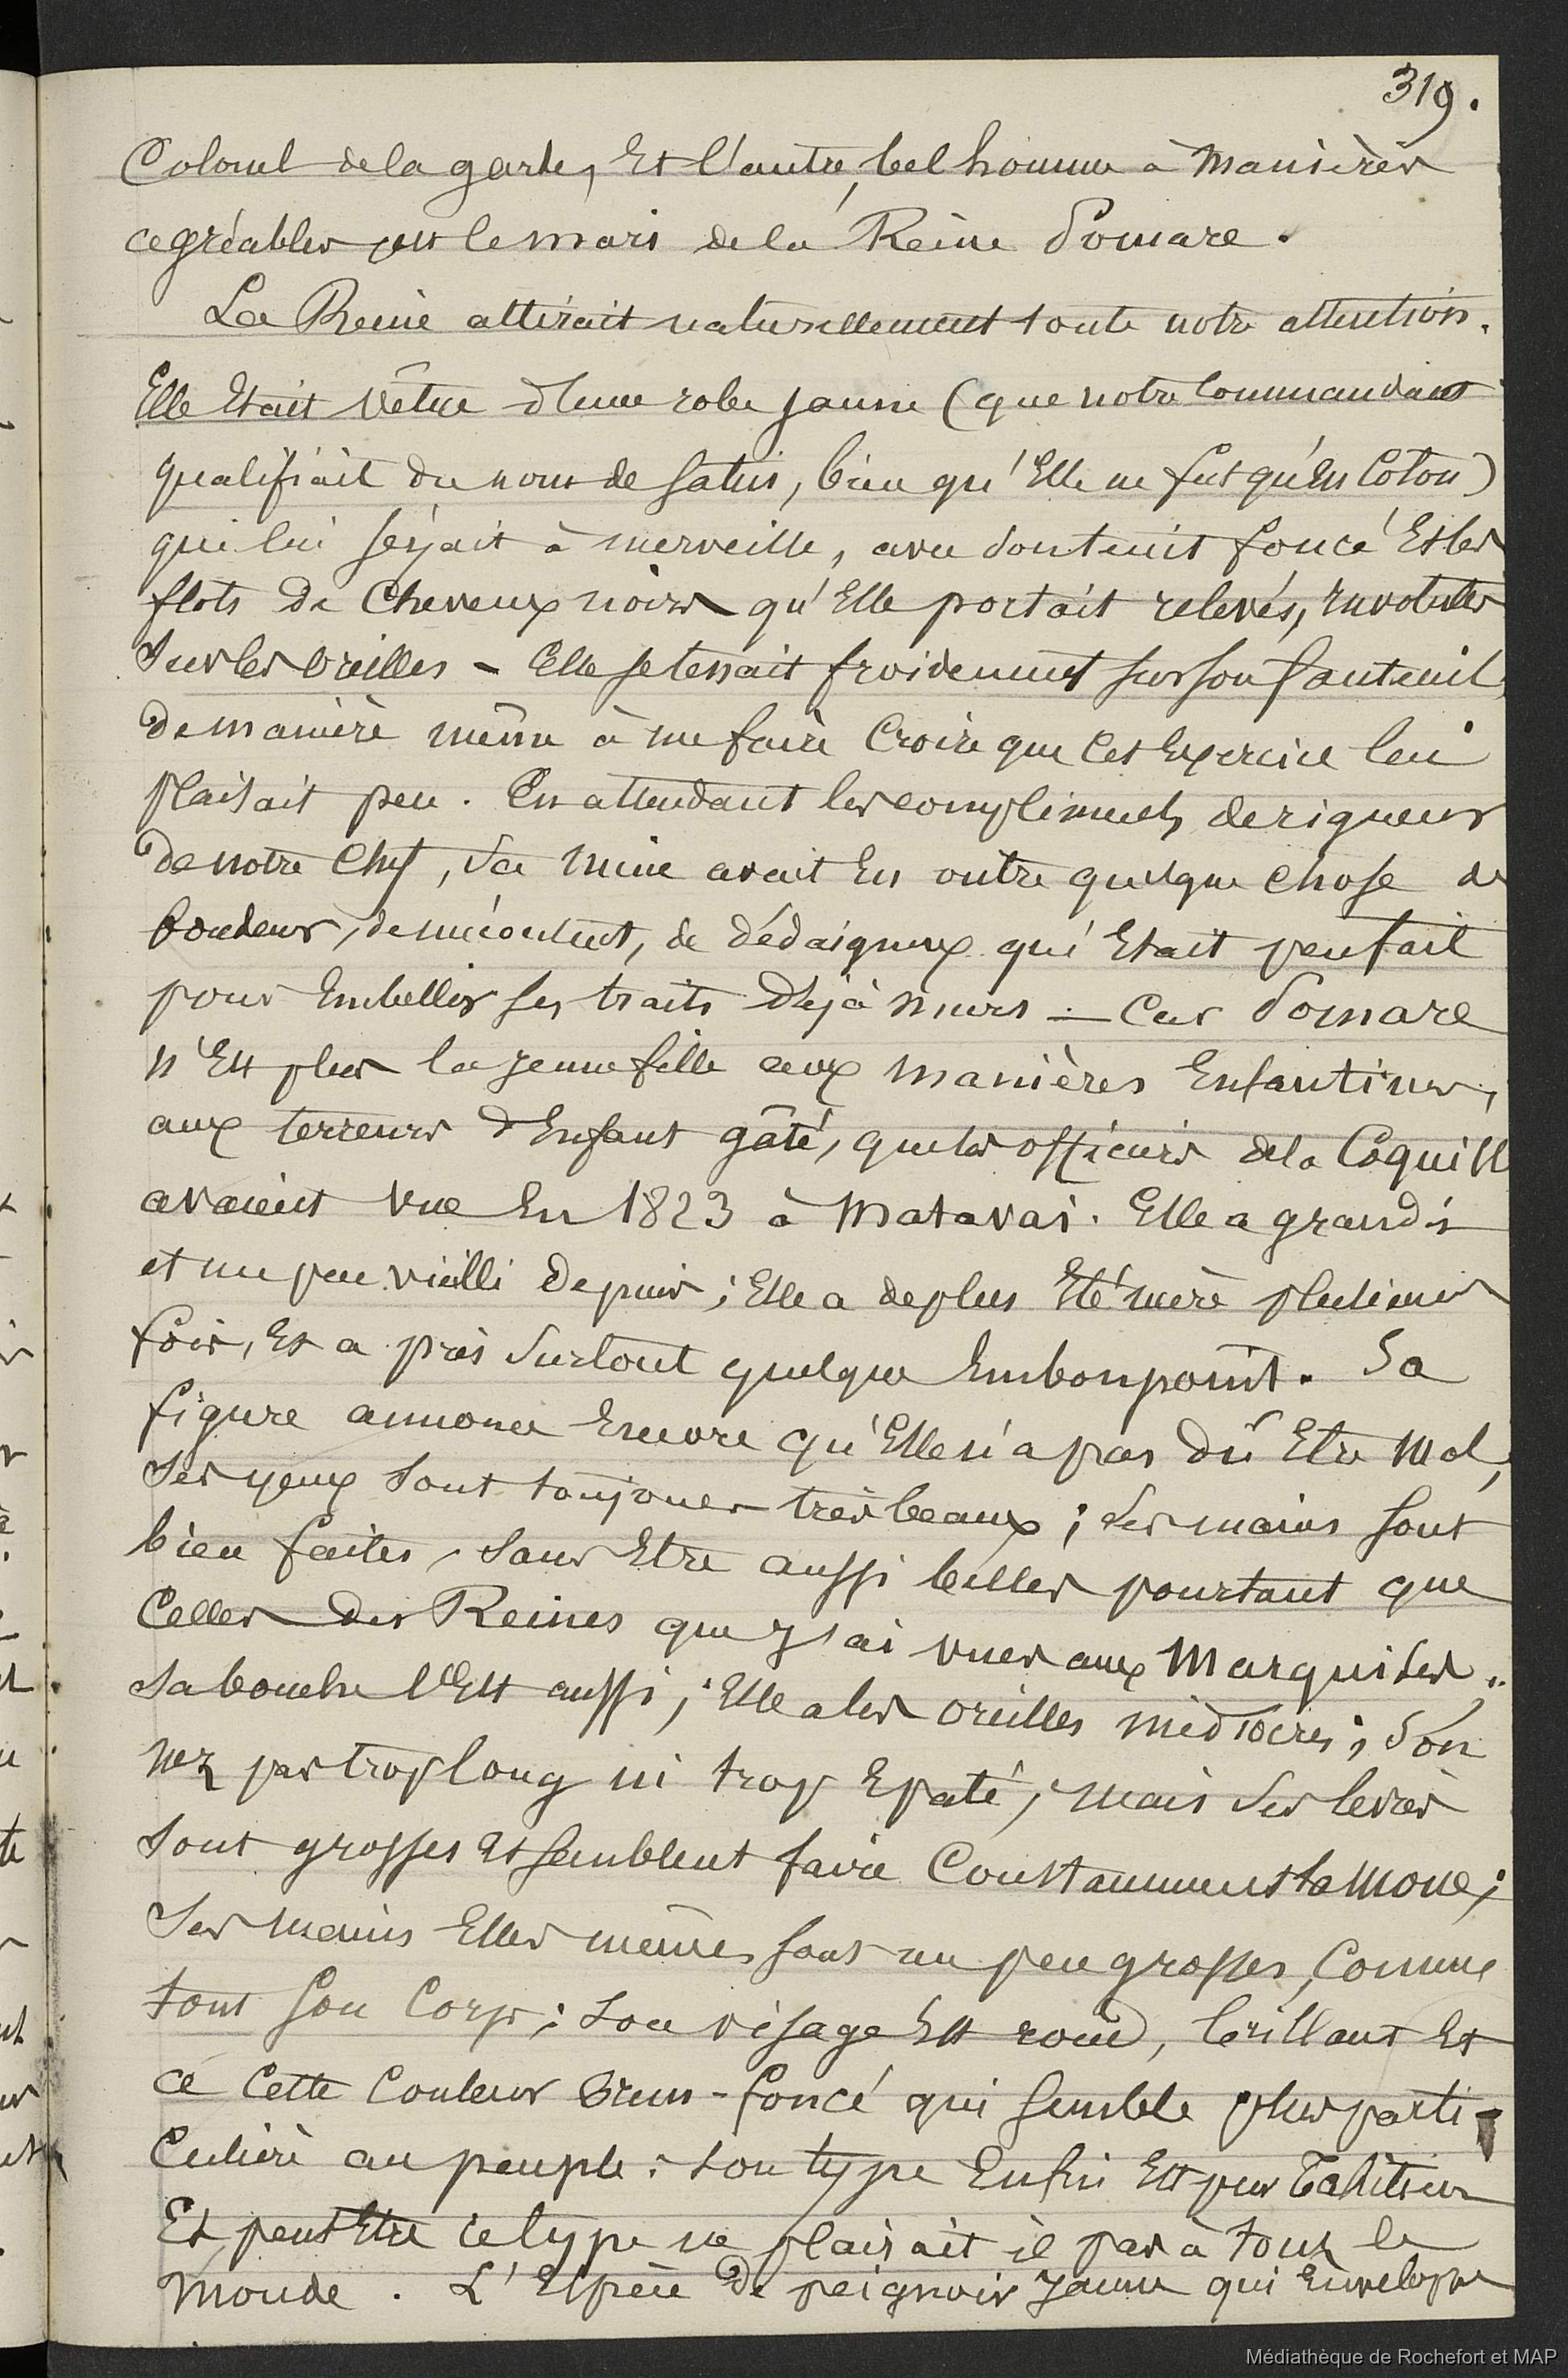 319.
Colonel de la garde, Et l'autre, bel homme à Manières
agréables est le mari de la Reine Pomare.
La Reine attirait naturellement toute notre attention.
Elle Etait vêtue d'une robe jaune (que notre Commandant
qualifiait du nom de satin, bien qu'Elle ne fut qu'En Coton)
qui lui seyait à merveille, avec son teint foncé Et les
flots de Cheveux noirs qu'Elle portait relevés, Envolutés
sur les oreilles - Elle se tenait froidement sur son fauteuil,
de manière même à me faire Croire que Cet Exercice lui
plaisait peu. En attendant les compliments de rigueur
de notre Chef, sa mine avait En outre quelque chose de
boudeur, de mécontent, de dédaigneux qui Etait peu fait
pour Embellir ses traits déjà murs — Car Pomare
n'Est plus la jeune fille aux manières Enfantines,
aux terreurs d'Enfant gâté, que les officiers de la Coquille
avaient vue En 1823 à Matavai. Elle a grandi
et un peu vieilli depuis ; Elle a de plus Eté mère plusieurs
fois, Et a pris surtout quelque Embonpoint. Sa
figure annonce Encore qu'Elle n'a pas dû Etre mal,
ses yeux sont toujours très beaux ; ses mains sont
bien faites, sans Etre aussi belles pourtant que
Celles des Reines que j'ai vues aux Marquises ;
sa bouche l'Est aussi ; Elle a les oreilles médiocres ; Son
nez pas trop long ni trop Epaté ; mais ses lèvres
sont grosses Et semblent faire Constamment la moue ;
Ses mains Elles mêmes sont un peu grosses, Comme
tout son Corps ; son visage Est rond, brillant Et
de Cette Couleur Brun-foncé qui semble plus parti-
Culière au peuple : son type Enfin Est pur Tahitien
Et peut Etre ce type ne plairait il pas à tout le
Monde. L'Espèce de peignoir Jaune qui Enveloppe
Médiathèque de Rochefort et MAP